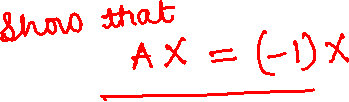 Show that
AX = (-1)X